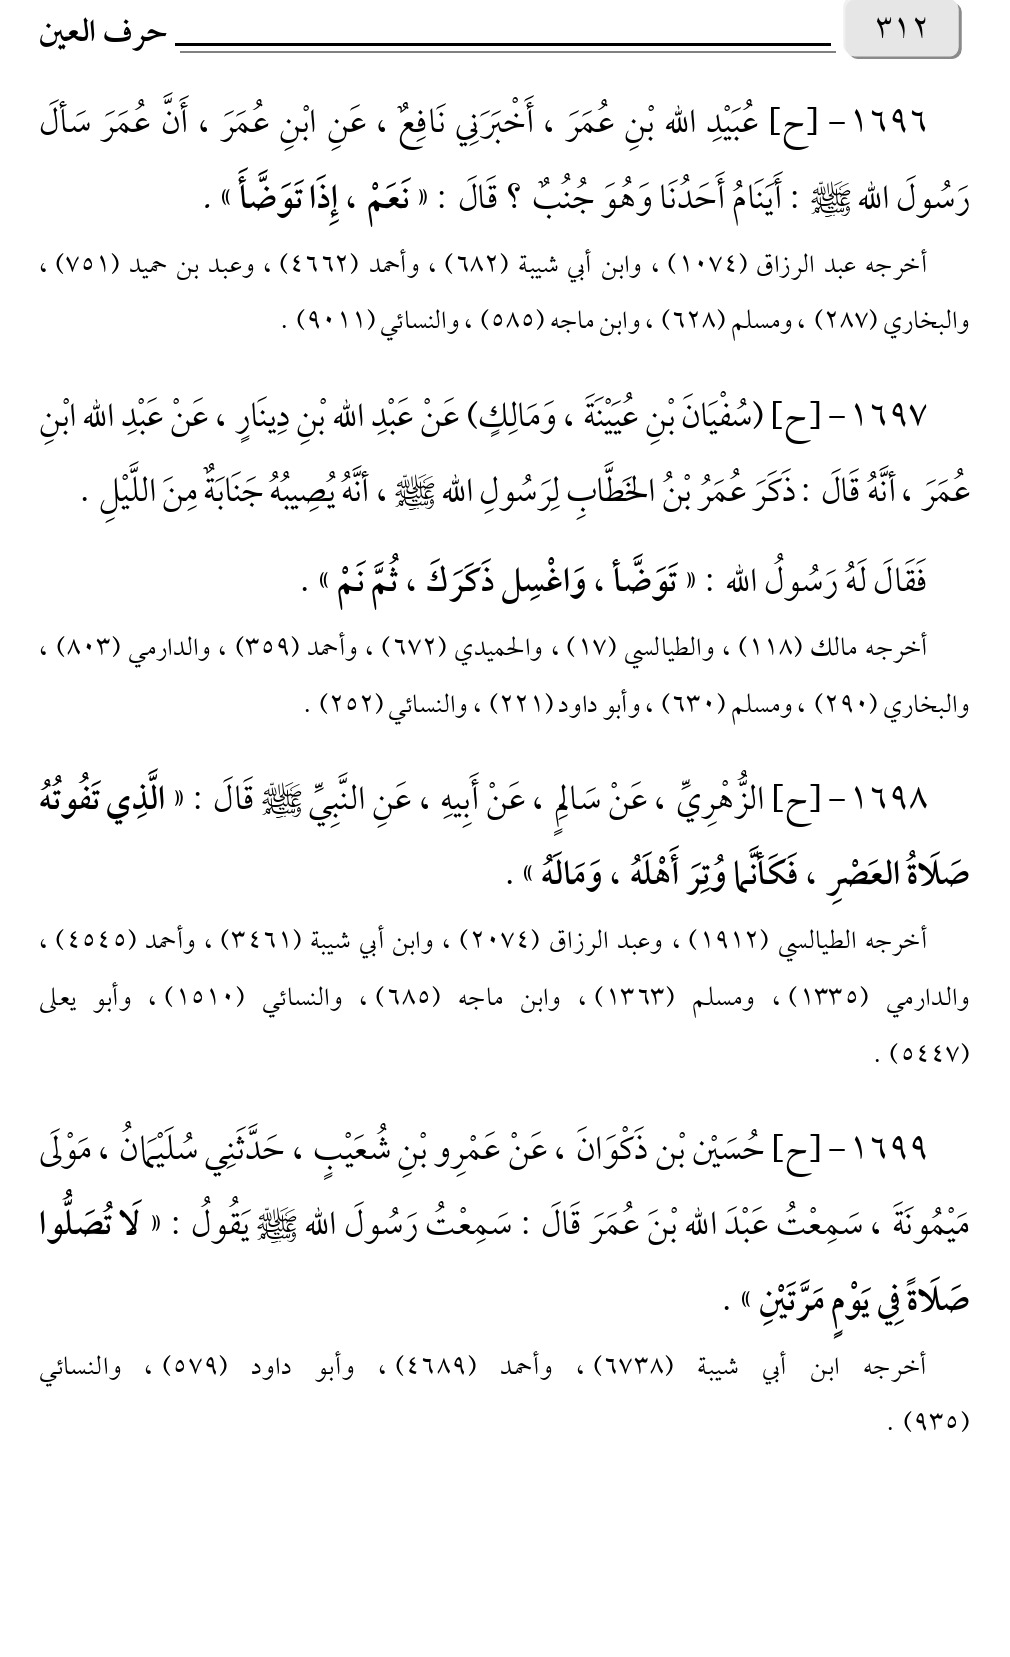 ٣١٢
حرف العين
١٦٩٦- [ح] عُبَيْدِ الله بْنِ عُمَرَ ، أَخْبَرَنِي نَافِعٌ ، عَنِ ابْنِ عُمَرَ ، أَنَّ عُمَرَ سَألَ
رَسُولَ الله ﷺ : أَيَنَامُ أَحَدُنَا وَهُوَ جُنُبٌ ؟ قَالَ : « نَعَمْ ، إِذَا تَوَضَّأَ » .
أخرجه عبد الرزاق (١٠٧٤) ، وابن أبي شيبة (٦٨٢) ، وأحمد (٤٦٦٢) ، وعبد بن حميد (٧٥١) ،
والبخاري (٢٨٧) ، ومسلم (٦٢٨) ، وابن ماجه (٥٨٥) ، والنسائي (٩٠١١) .
١٦٩٧- [ح] (سُفْيَانَ بْنِ عُيَيْنَةَ ، وَمَالِكٍ) عَنْ عَبْدِ الله بْنِ دِينَارٍ ، عَنْ عَبْدِ الله ابْنِ
عُمَرَ ، أنَّهُ قَالَ : ذَكَرَ عُمَرُ بْنُ الخَطَّابِ لِرَسُولِ الله ﷺ ، أنَّهُ يُصِيبُهُ جَنَابَةٌ مِنَ اللَّيْلِ .
فَقَالَ لَهُ رَسُولُ الله : « تَوَضَّأ ، وَاغْسِل ذَكَرَكَ ، ثُمَّ نَمْ » .
أخرجه مالك (١١٨) ، والطيالسي (١٧) ، والحميدي (٦٧٢) ، وأحمد (٣٥٩) ، والدارمي (٨٠٣) ،
والبخاري (٢٩٠) ، ومسلم (٦٣٠) ، وأبو داود (٢٢١) ، والنسائي (٢٥٢) .
١٦٩٨- [ح] الزُّهْرِيِّ ، عَنْ سَالِمٍ ، عَنْ أَبِيهِ ، عَنِ النَّبِيِّ ﷺ قَالَ : « الَّذِي تَفُوتُهُ
صَلَاةُ العَصْرِ ، فَكَأنَّما وُتِرَ أَهْلَهُ ، وَمَالَهُ » .
أخرجه الطيالسي (١٩١٢) ، وعبد الرزاق (٢٠٧٤) ، وابن أبي شيبة (٣٤٦١) ، وأحمد (٤٥٤٥) ،
والدارمي (١٣٣٥) ، ومسلم (١٣٦٣) ، وابن ماجه (٦٨٥) ، والنسائي (١٥١٠) ، وأبو يعلى
(٥٤٤٧) .
١٦٩٩- [ح] حُسَيْن بْن ذَكْوَانَ ، عَنْ عَمْرِو بْنِ شُعَيْبٍ ، حَدَّثَنِي سُلَيْمَانُ ، مَوْلَى
مَيْمُونَةَ ، سَمِعْتُ عَبْدَ الله بْنَ عُمَرَ قَالَ : سَمِعْتُ رَسُولَ الله ﷺ يَقُولُ : « لَا تُصَلُّوا
صَلَاةً فِي يَوْمٍ مَرَّتَيْنِ » .
أخرجه ابن أبي شيبة (٦٧٣٨) ، وأحمد (٤٦٨٩) ، وأبو داود (٥٧٩) ، والنسائي
(٩٣٥) .